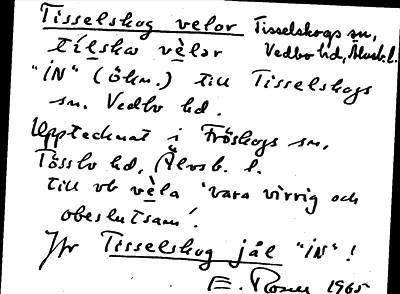 Tisselskog velor Tisselskogs sn,
tilska vèlər Vedbo hd, Älvsb. l.
"IN" (ökn.) till Tisselskogs
sn. Vedbo hd.
Upptecknat i Fröskogs sn.
Tössbo hd, Älvsb. l.
till vb vèla 'vara virrig och
obeslutsam'.
Jfr Tisselskog jål "IN"!
E. 1965